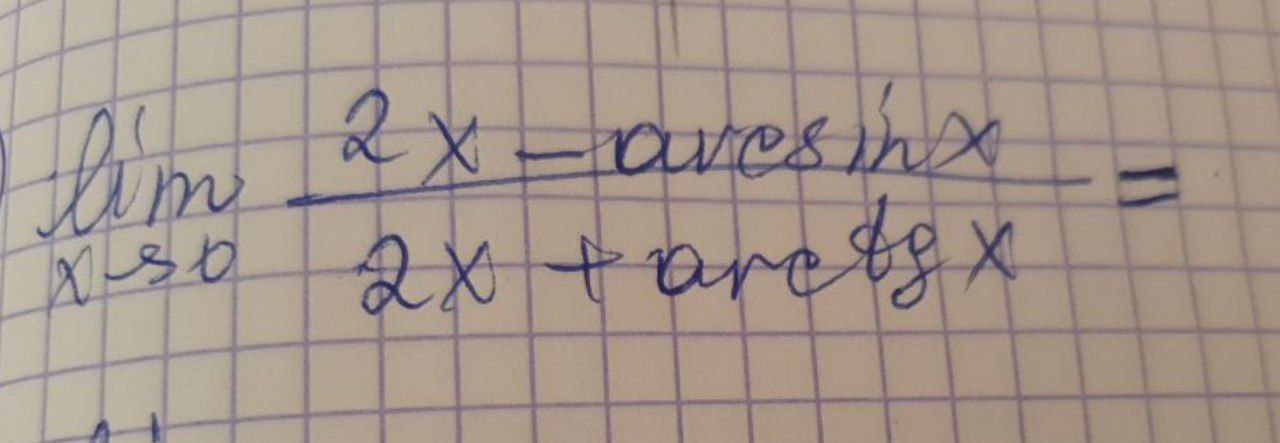 lim 2x - arcsin x =
x→0 2x + arctg x